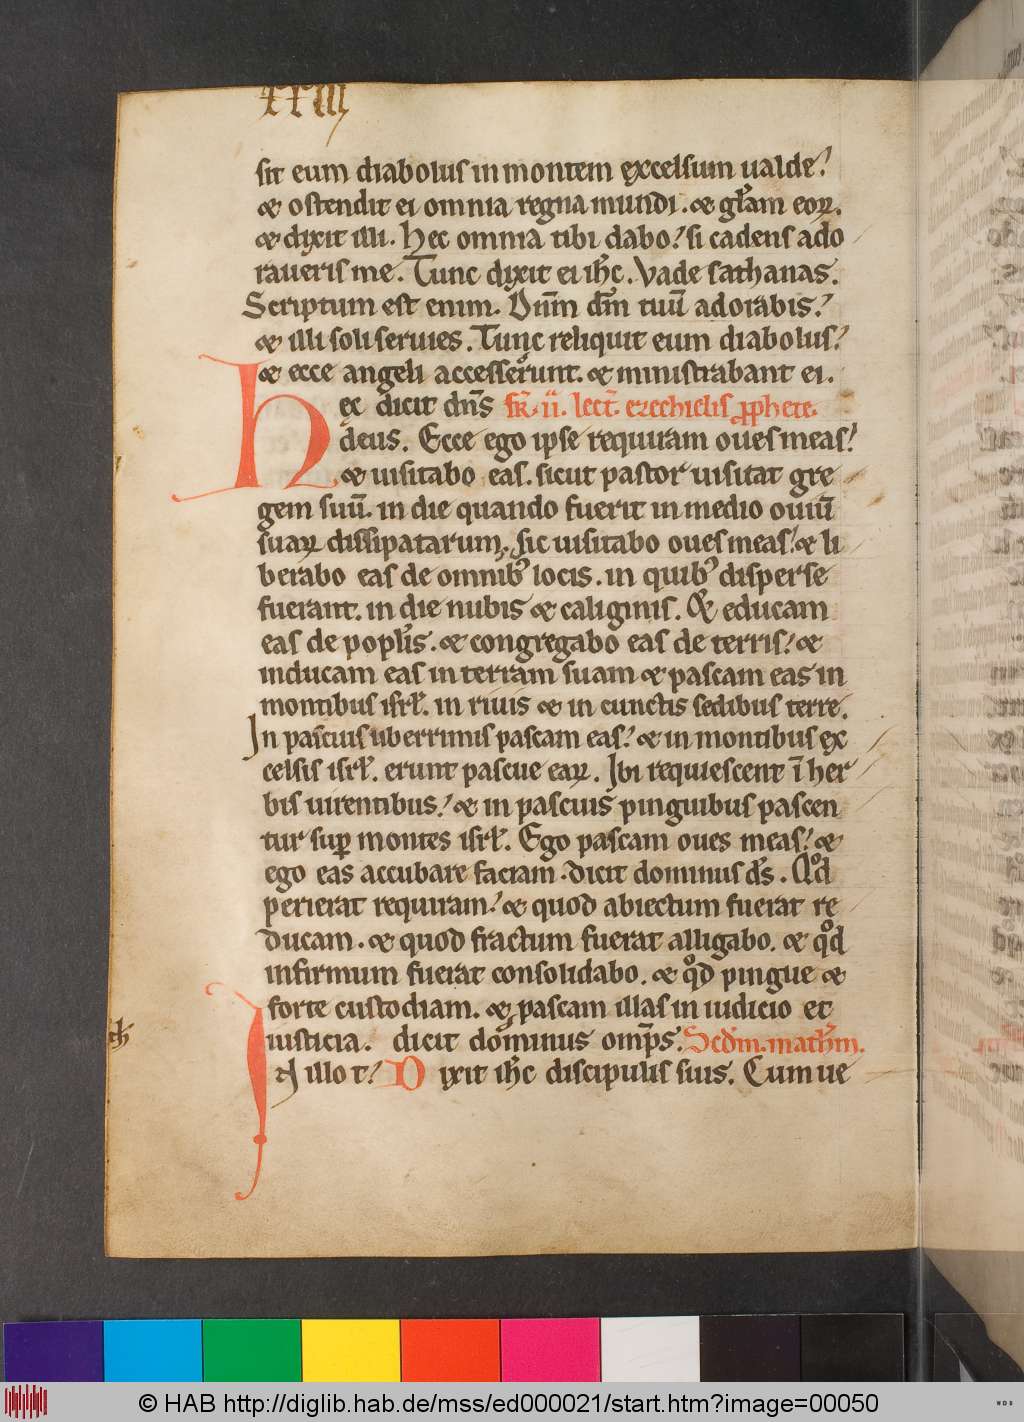 xxiii
sit eum diabolus in montem excelsum ualde.
⁊ ostendit ei omnia regna mundi. ⁊ gl̅am eoꝝ.
⁊ dixit illi. Hec omnia tibi dabo. si cadens ado
raueris me. Tunc dixit ei ih̅c. Vade sathanas.
Scriptum est enim. Dn̅m dm̅ tuū adorabis.
⁊ illi soli seruies. Tunc reliquit eum diabolus.
⁊ ecce angeli accesserunt. ⁊ ministrabant ei.
Hęc dicit dn̅s fr̅. ii. lect̅. ezechielis ꝓphete.
deus. Ecce ego ipse requiram oues meas.
⁊ uisitabo eas. sicut pastor uisitat gre
gem suū. in die quando fuerit in medio ouiū
suaꝝ dissipatarum. sic uisitabo oues meas. ⁊ li
berabo eas de omnibꝰ locis. in quibꝰ disperse
fuerant. in die nubis ⁊ caliginis. Et educam
eas de popl̅is. ⁊ congregabo eas de terris. ⁊
inducam eas in terram suam ⁊ pascam eas in
montibus isrl̅. in riuis ⁊ in cunctis sedibus terre.
In pascuis uberrimis pascam eas. ⁊ in montibus ex
celsis isrl̅. erunt pascue eaꝝ. Ibi requiescent ī her
bis uirentibus. ⁊ in pascuis pinguibus pascen
tur suꝑ montes isrl̅. Ego pascam oues meas. ⁊
ego eas accubare faciam. dicit dominus ds̅. Qod
perierat requiram. ⁊ quod abiectum fuerat re
ducam. ⁊ quod fractum fuerat alligabo. ⁊ qod
infirmum fuerat consolidabo. ⁊ qod pingue ⁊
forte custodiam. ⁊ pascam illas in iudicio et
iusticia. dicit dominus omp̅s. Scdm̅. mathm̅.
In illo t. Dixit ih̅c discipulis suis. Cum ue
© HAB http://diglib.hab.de/mss/ed000021/start.htm?image=00050